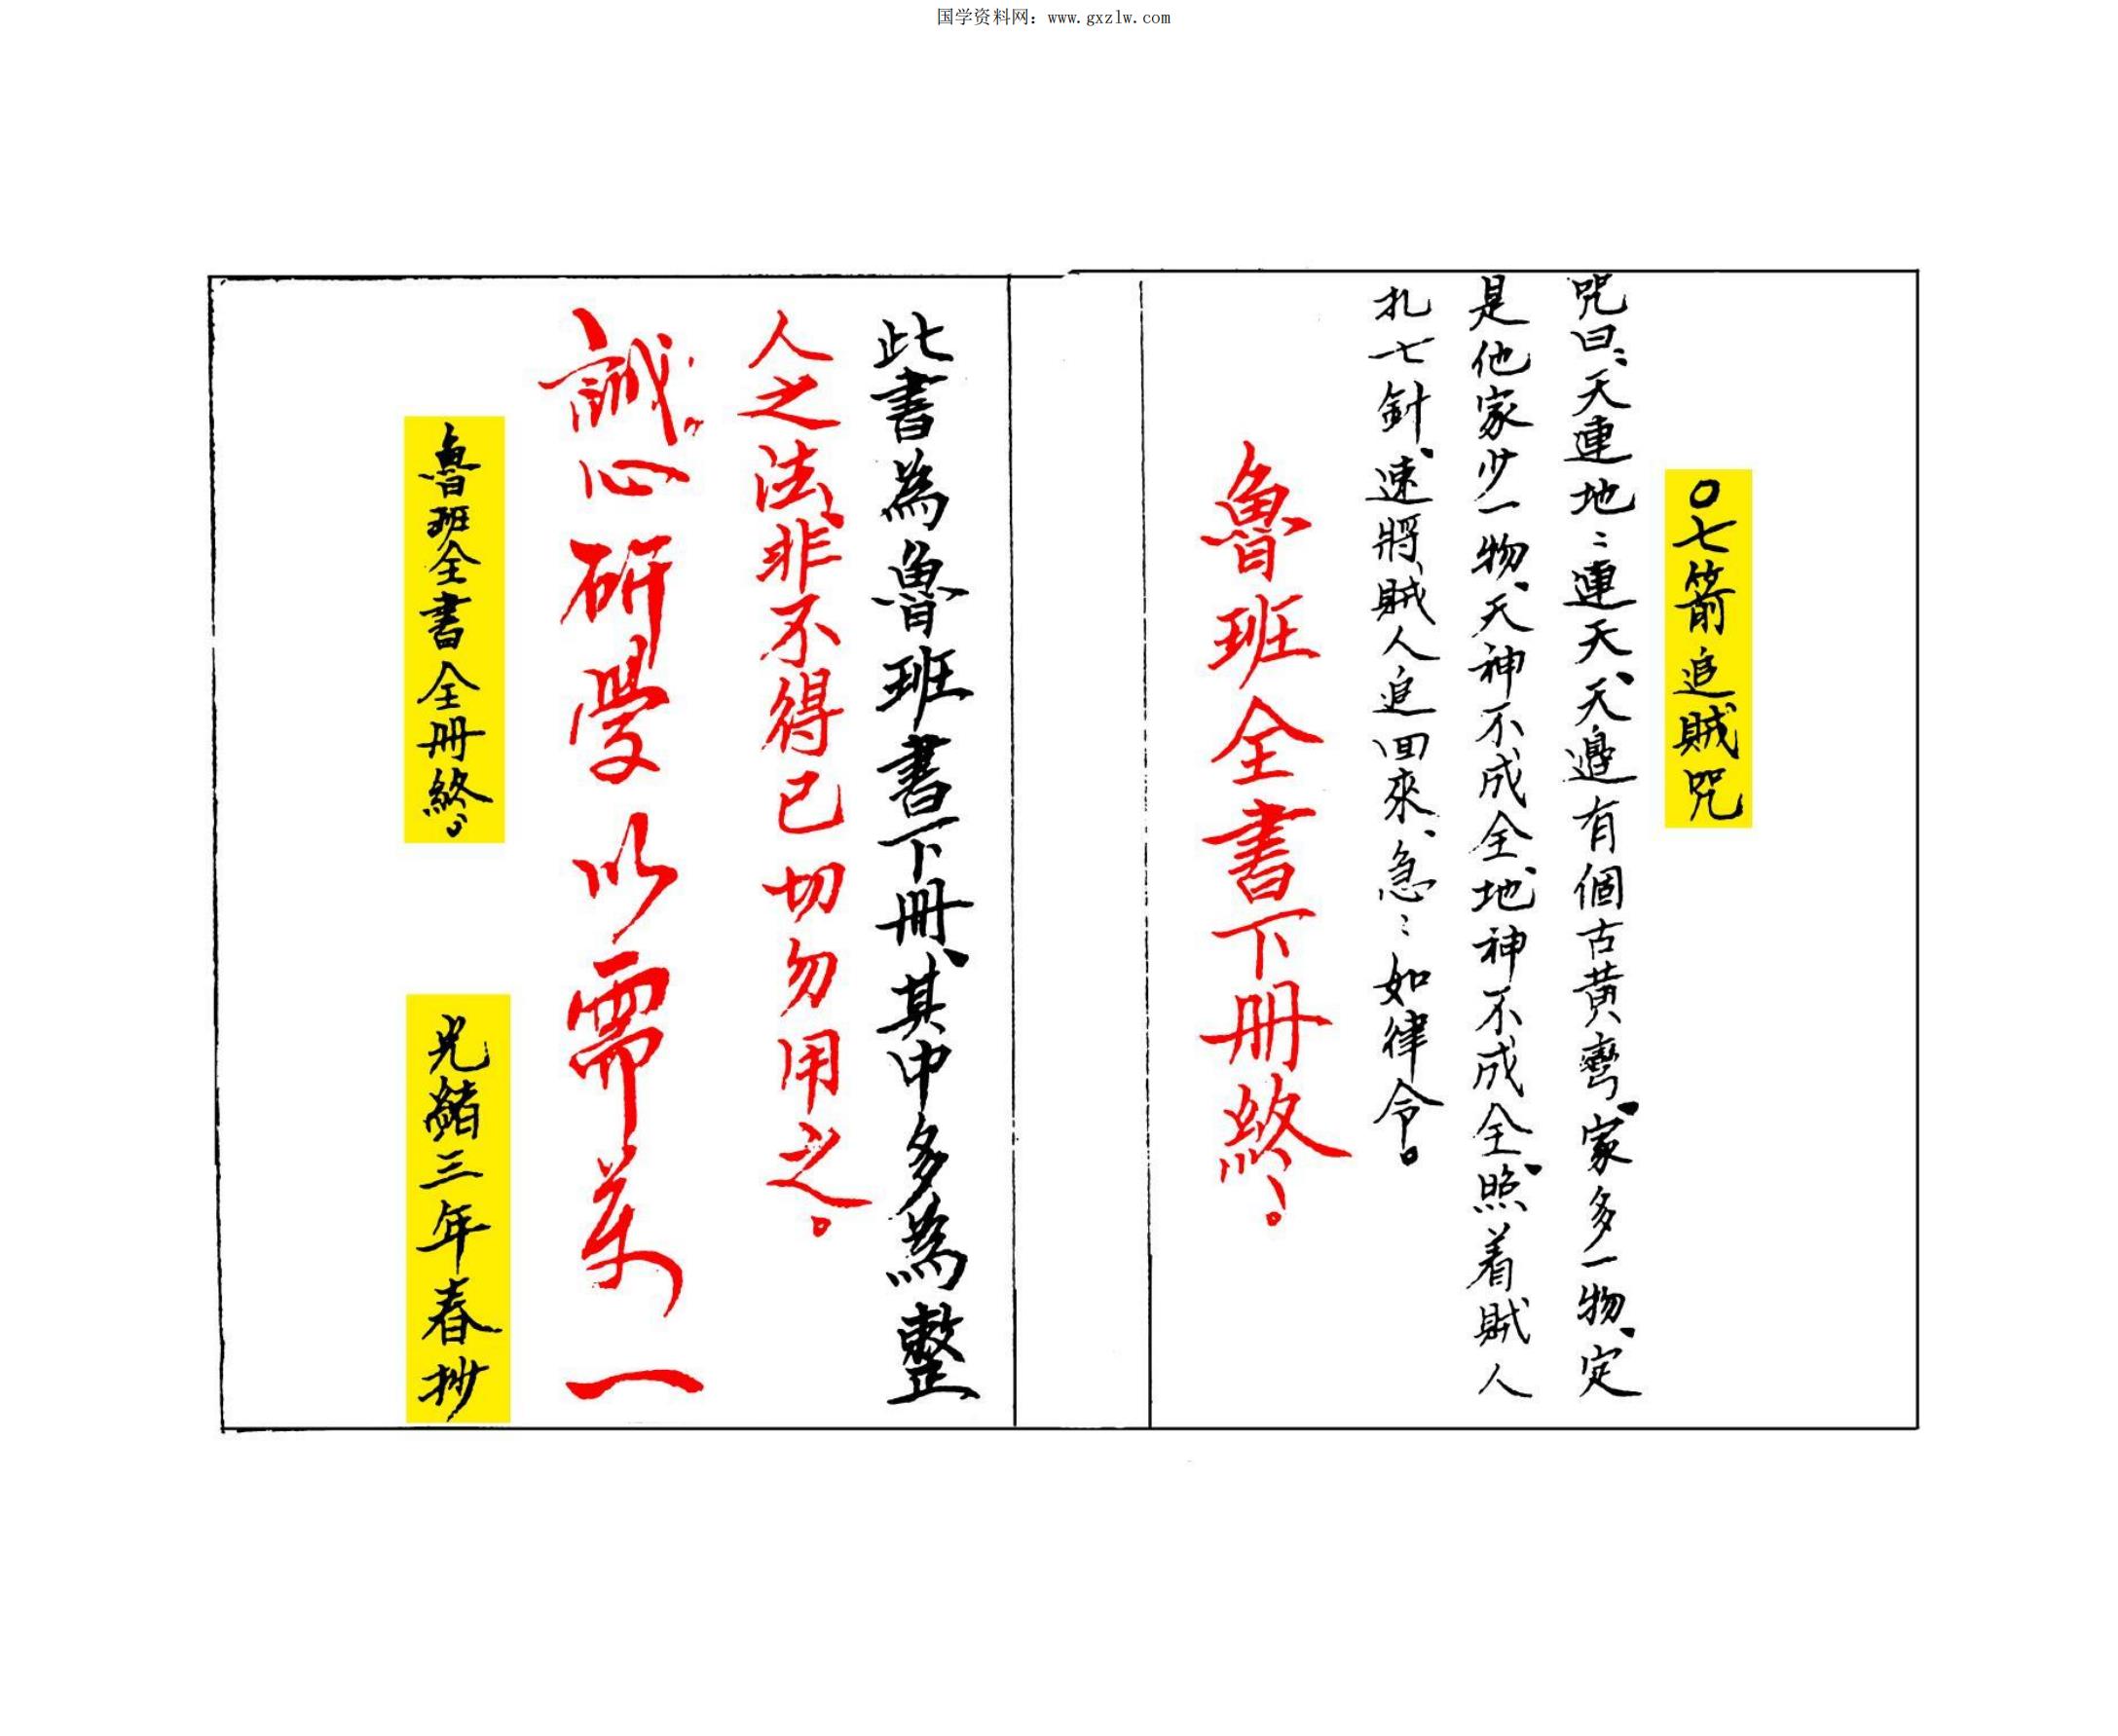 国学资料网：www.gxzlw.com
〇七箭追賊咒
咒曰：天連地：連天、天邊有個古黄彎、家多一物、定
是他家少一物、天神不成全、地神不成全、照着賊人
扎七針、速將賊人追回來、急：如律令。
魯班全書下册終！。
此書為魯班書下册、其中多為整
人之法、非不得已切勿用之。
誠心研學以需萬一
魯班全書全册終。
光緒三年春抄